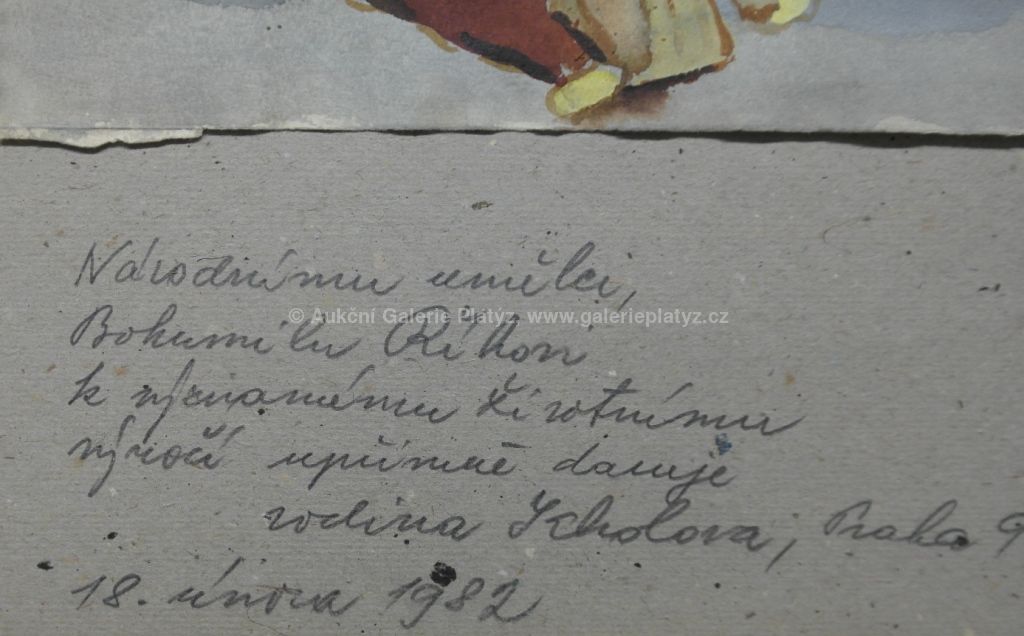 Národnímu umělci,
© Aukční Galerie Platýz, www.galerieplatyz.cz
Bohumilu Říhovi
k významnému životnímu
výročí upřímně daruje
rodina Kholova, Praha 9
18. února 1982